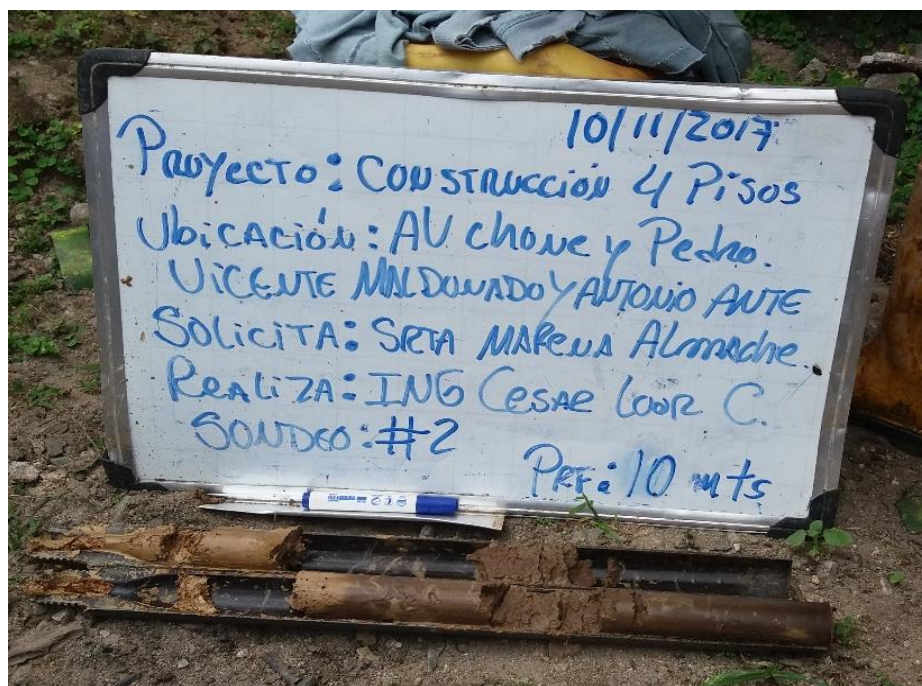 10/11/2017
PROYECTO: CONSTRUCCIÓN 4 PISOS
UbiCACIÓN: AV. chone y Pedro.
VICENTE MALDONADO Y ANTONIO ANTE
SOLICITA: SRTA MARENA Almache.
REALIZA: ING Cesar Loor C.
SONDEO: #2
PRF: 10 mts